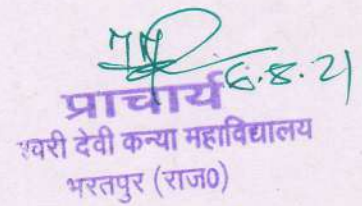 6.8.21
प्राचार्य
देवी कन्या महाविद्यालय
भरतपुर (राज0)